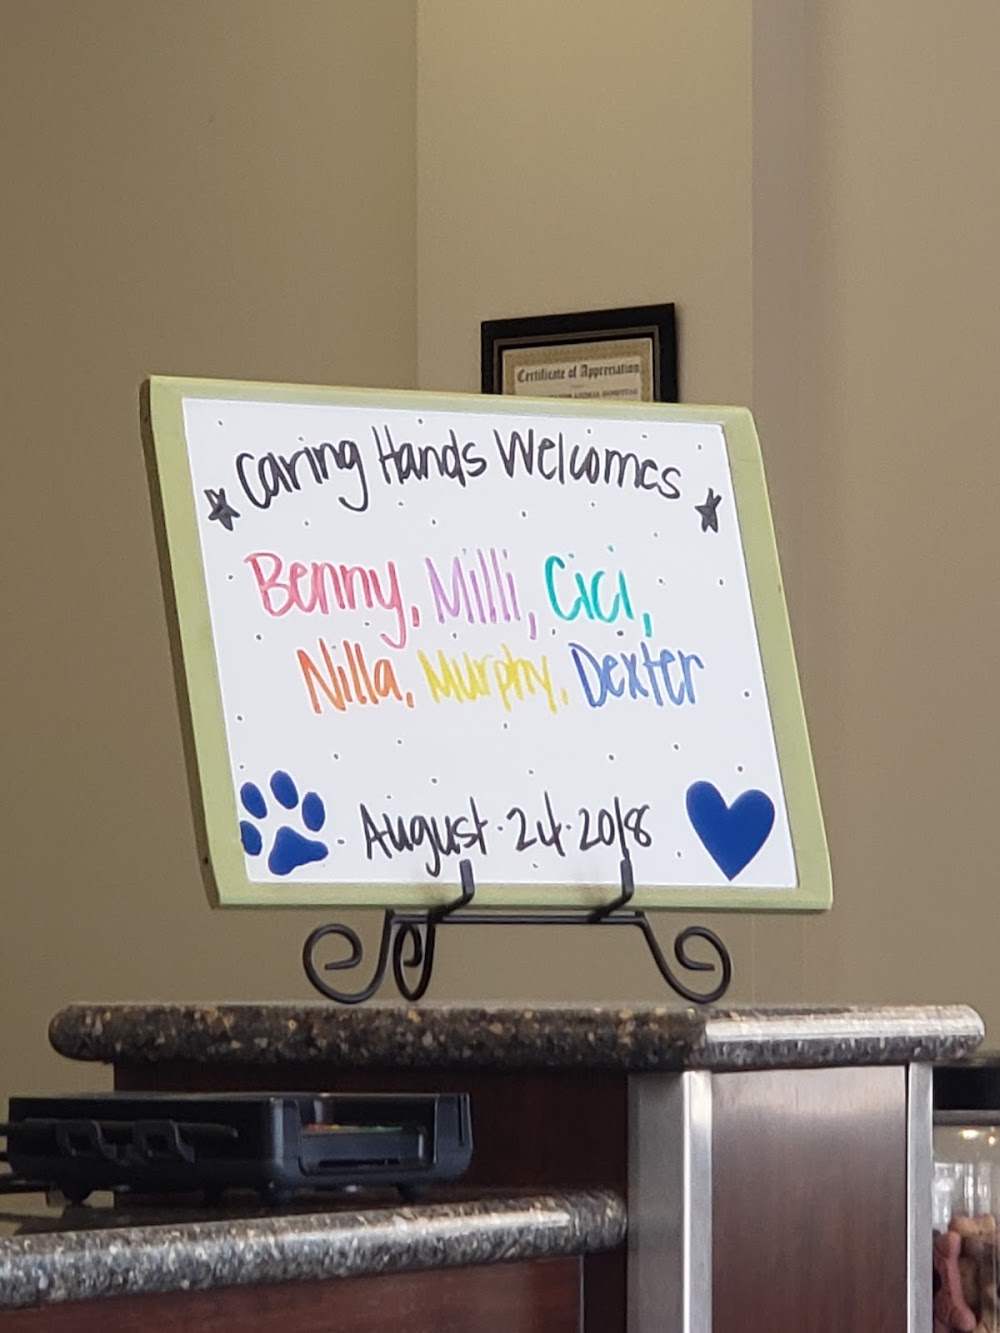 Certificate of Appreciation
Caring Hands Welcomes
Benny, Milli, Cici,
Nilla, Murphy, Dexter
August · 24 · 2018